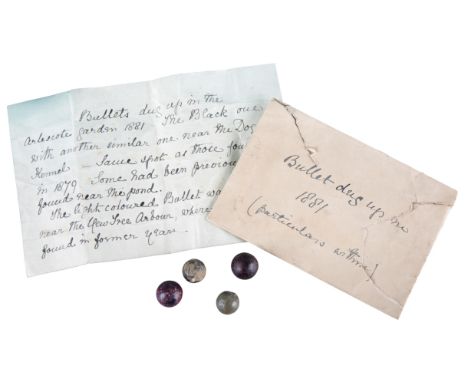 Bullets dug up in the
Arlescote Garden 1881 The Black one
with another similar one near the Dog
Kennel – Same spot as those foun
in 1879 Some had been previou
found near the pond.
The light coloured Bullet wa
near the Yew Tree Arbour, where
found in former years
Bullet dug up in
1881
(particulars within)